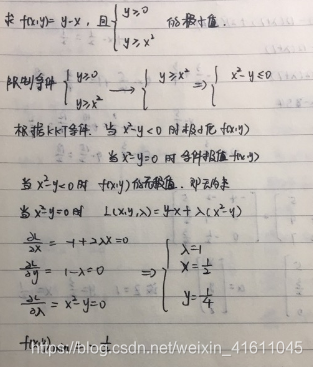 求 f(x,y)= y-x, 且 { y≥0 y≥x² 的极小值.
限制条件 { y≥0 y≥x² → { y≥x² ⇒ { x²-y≤0
根据KKT条件 当 x²-y<0 时 极小化 f(x,y)
当 x²-y=0 时 条件极值 f(x,y)
当 x²-y<0 时 f(x,y) 无极值.
当 x²-y=0 时 L(x,y,λ)=y-x+λ(x²-y)
∂L/∂x = -1+2λx=0
∂L/∂y = 1-λ=0
∂L/∂λ = x²-y=0
⇒ { λ=1 x=1/2 y=1/4
f(x,y)min = -1/4
https://blog.csdn.net/weixin_41611045